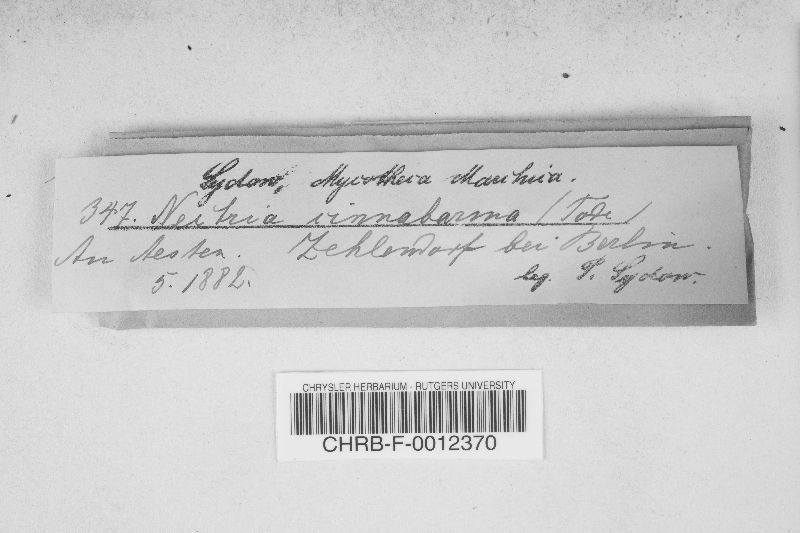 Sydow, Mycotheca Marchica.
347. Nectria cinnabarina (Tode)
An Aesten. Zehlendorf bei Berlin.
5. 1882. leg. P. Sydow.
CHRYSLER HERBARIUM - RUTGERS UNIVERSITY
CHRB-F-0012370